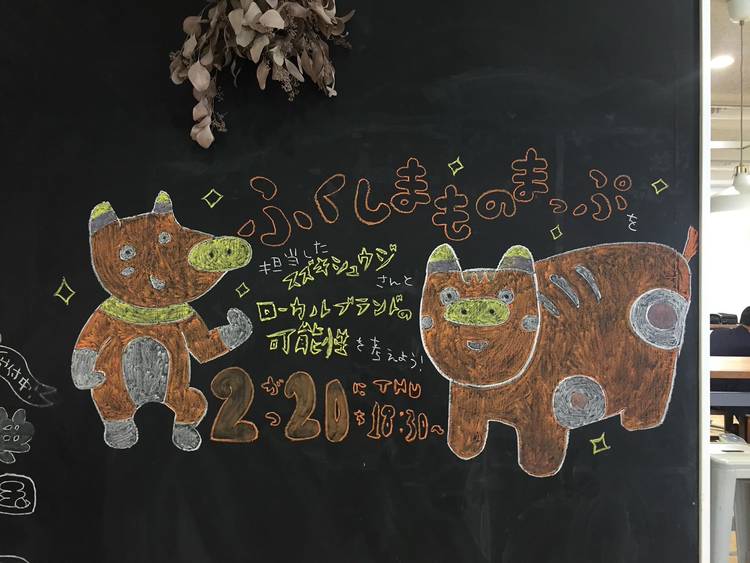 ふくしまものまっぷを
担当した
スズキシュウジさんと
ローカルブランドの
可能性を考えよう!
2がつ20にち THU 18:30~
付中